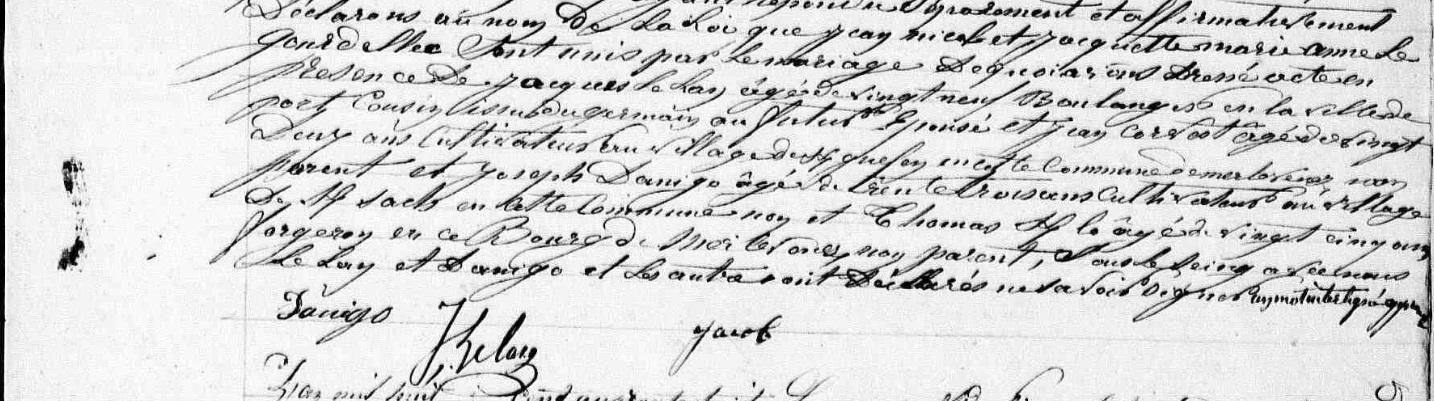 répondu séparément et affirmativement
Déclarons au nom de La Loi que jean nicol et jacquette marie anne Le
gourdellec Sont unis par Le mariage De quoi avons Dressé acte en
présence De jacques Le Lay âgé de vingt neuf Boulanger en la ville de
port Cousin issu du germain au futur Epousé et jean Corvost âgé de vingt
Deux ans Cultivateur au village de en cette Commune de merlevenez non
parent et joseph Danigo âgé de trente trois ans Cultivateur au village
De St Sach en cette Commune non et Thomas âgé de vingt cinq ans
forgeron en ce Bourg de Merlevenez non parent, Sous le Seing avec nous
Le Lay et Danigo et Les autre ont Déclarés ne Savoir Signer un mot interligné
Danigo
J Le Lay
Jacob
L'an mil huit Cent quarante huit Le